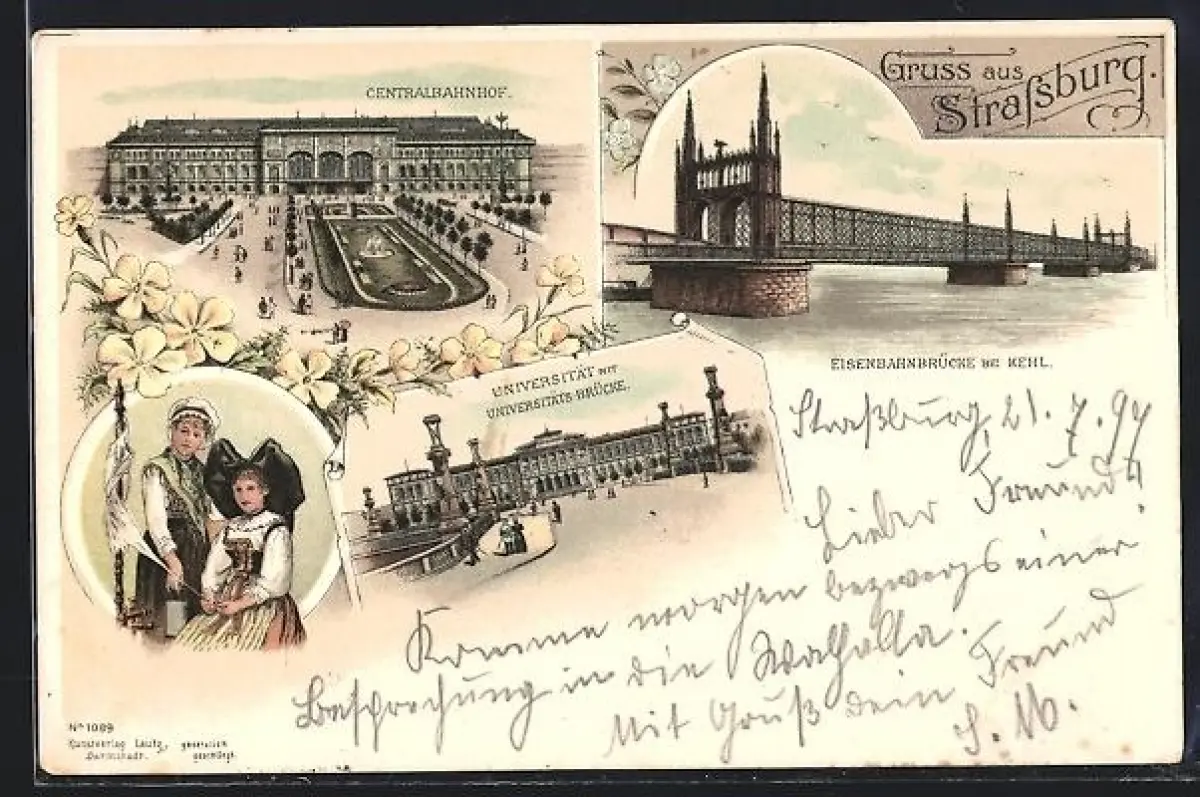 CENTRALBAHNHOF.
Gruss aus
Straſsburg.
EISENBAHNBRÜCKE BEI KEHL.
UNIVERSITÄT MIT
UNIVERSITÄTS-BRÜCKE.
Straßburg, 21. 7. 97
Lieber Freund!
Komme morgen bezwegs einer
Besprechung in die Walhalla.
Mit Gruß dein Freund
S. M.
No 1089
Kunstverlag Lautz, gesetzlich
Darmstadt. geschützt.